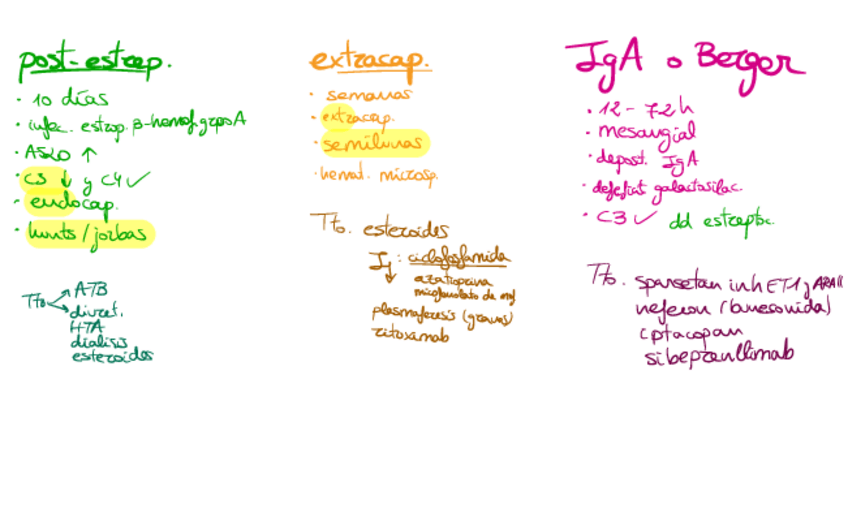 post-estrep.
· 10 días
· infec. estrep. β-hemol. grupo A
· ASLO ↑
· C3 ↓ y C4 ✓
· endocap.
· humts / jorbas
Tto. ATB
diuret.
HTA
dialisis
esteroides
extracap.
· semanas
· extracap.
· semilunas
· hemat. microsp.
Tto. esteroides
Ig : ciclofosfamida
azatioprina
micofenolato de mof
plasmaferesis (graves)
rituximab
IgA o Berger
· 12 - 72 h
· mesangial
· deposit. IgA
· defefiat galactosilac.
· C3 ✓ dd estreptoc.
Tto. sparsetan inh ET1 y ARAII
nefecon (budesonida)
iptacopan
sibeprenlimab